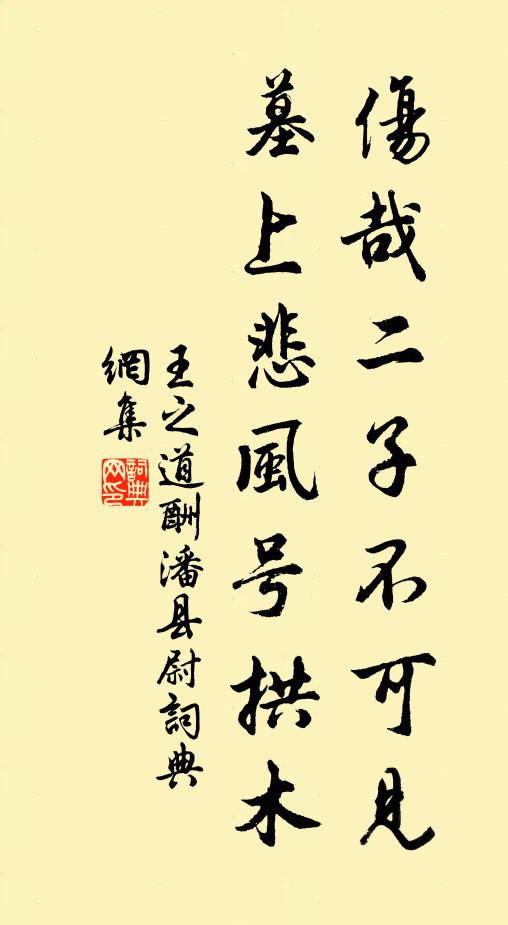 傷哉二子不可見
墓上悲風号拱木
王之道酬潘县尉詞典
網集
詞典網印